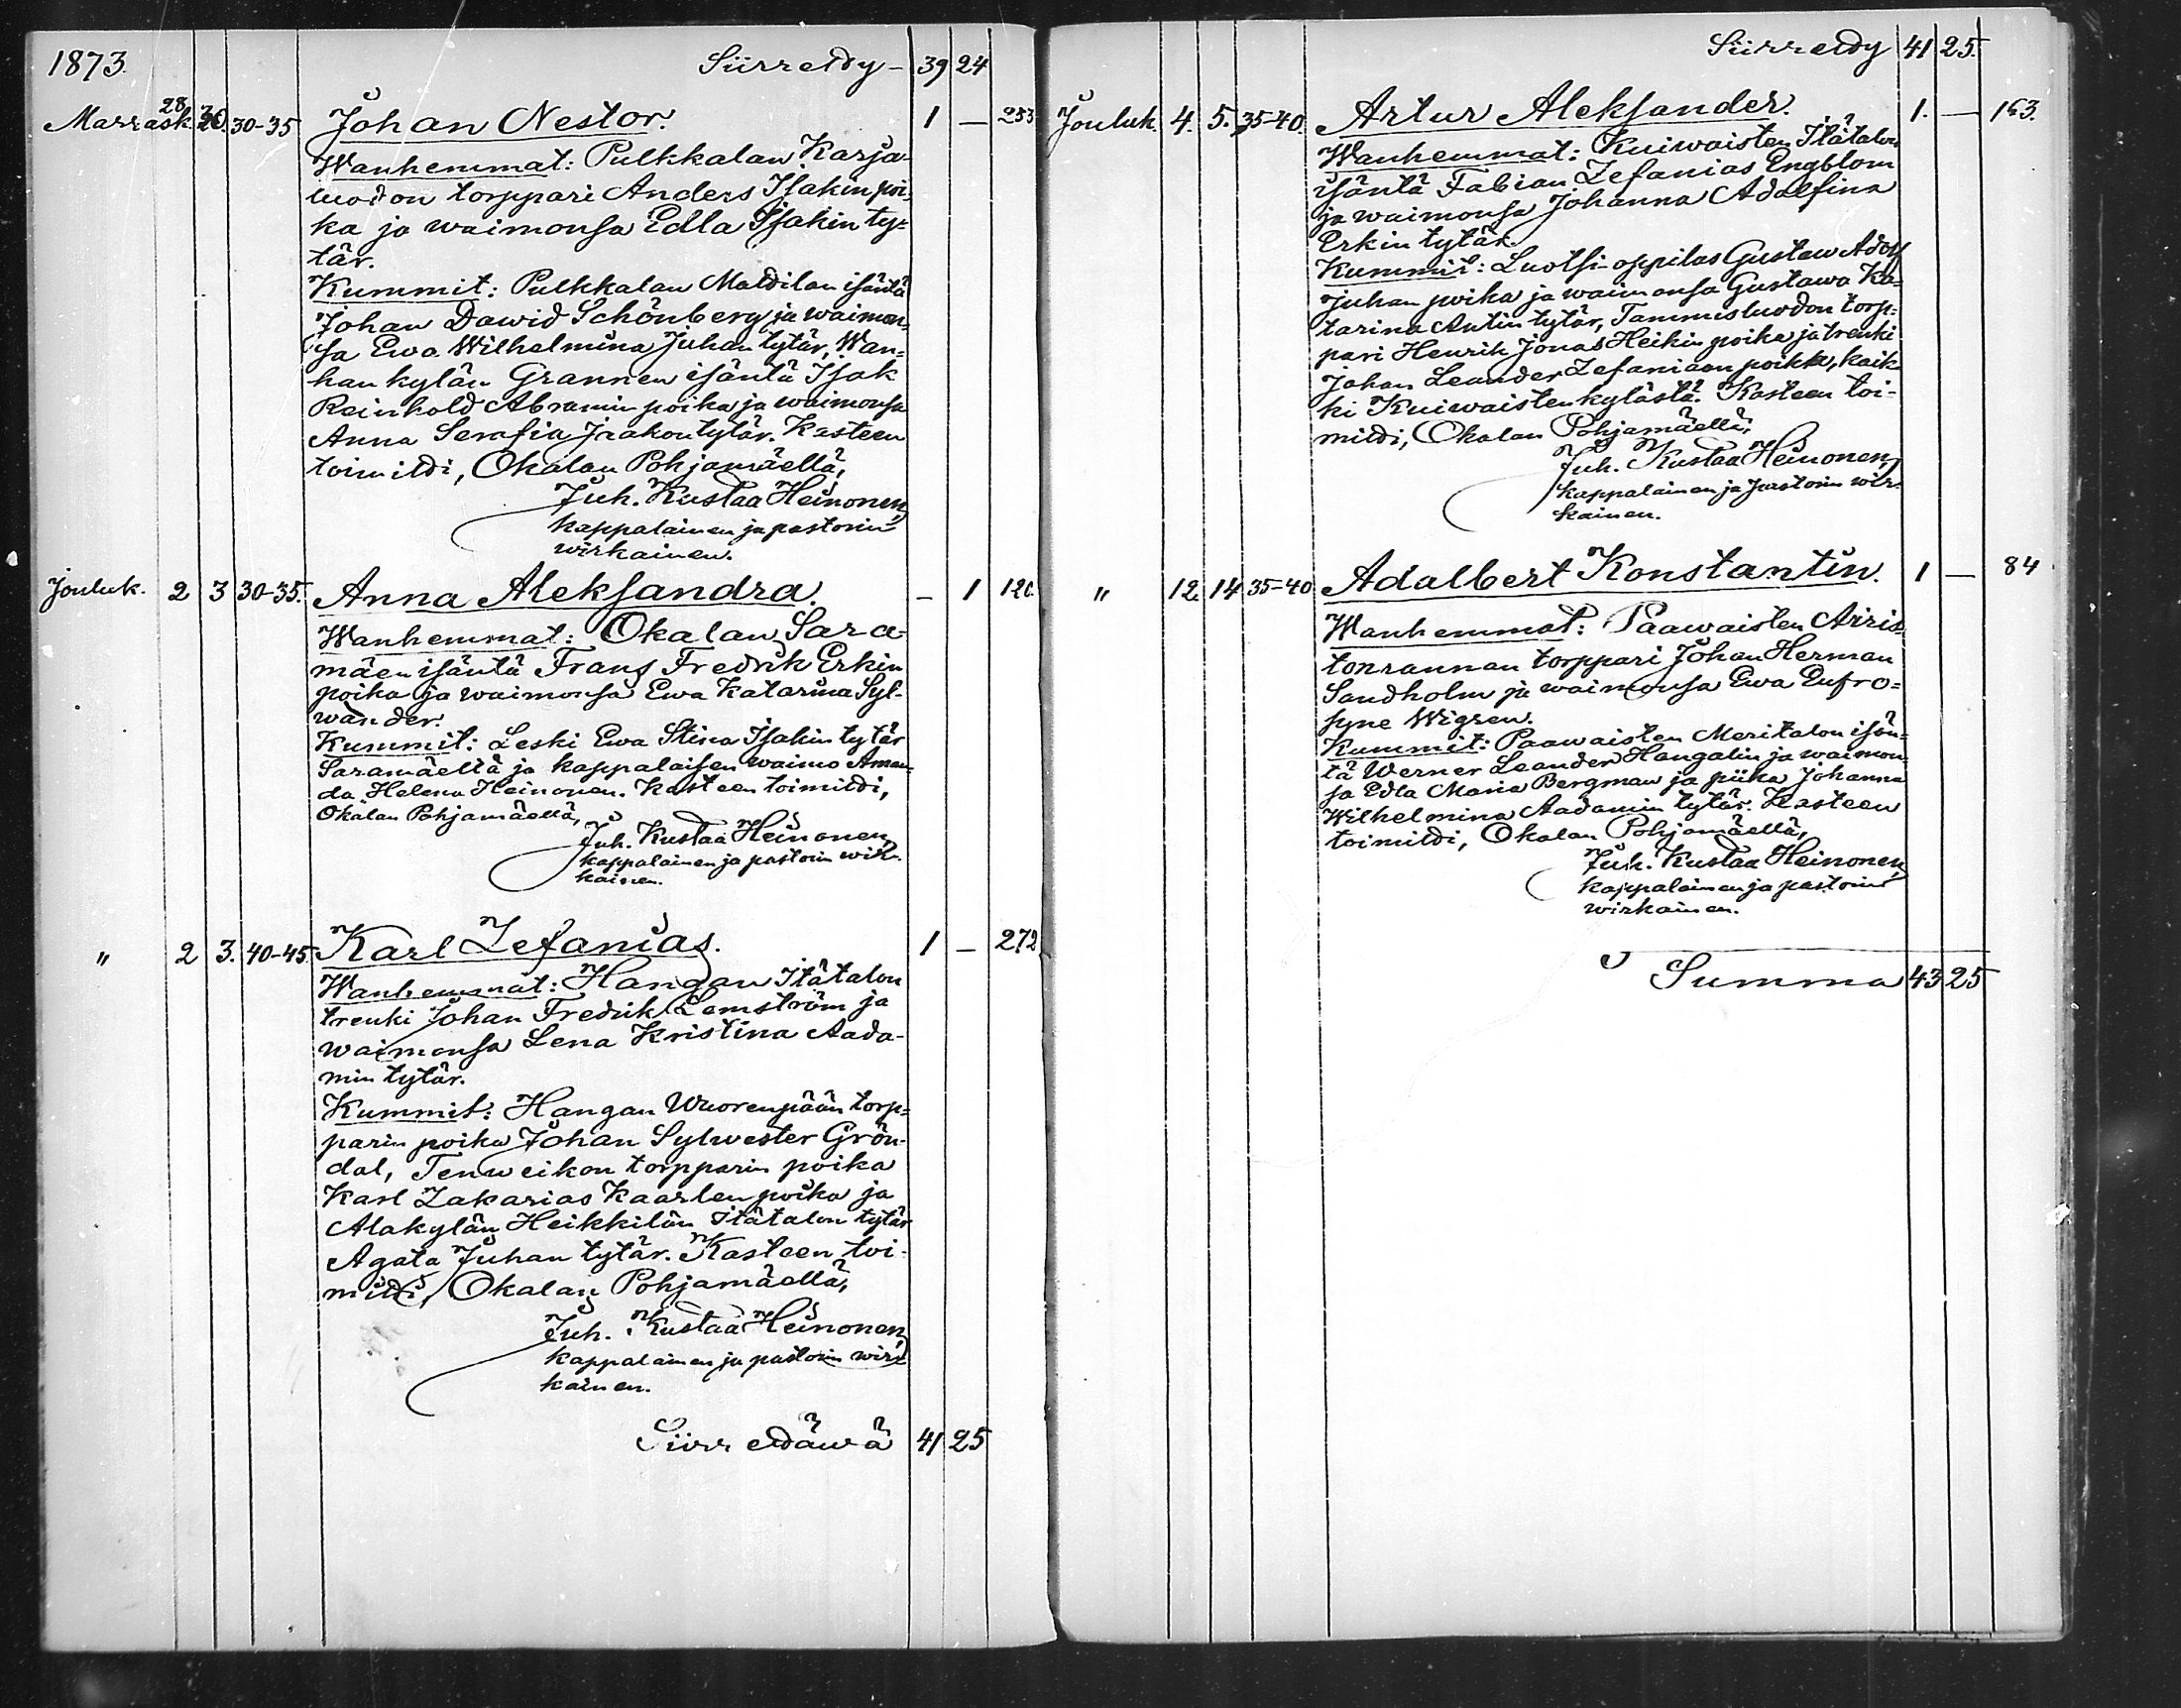 1873. Siirretty - 39 24
Marrask. 28 30. 30-35 Johan Nestor. 1 — 253
Wanhemmat: Pulkkalan Karja-
luodon torppari Anders Isakin poi-
ka ja waimonsa Edla Isakin ty=
tär.
Kummit: Pulkkalan Mattilan isäntä
Johan Dawid Schönberg ja waimon=
sa Ewa Wilhelmina Juhan tytär, Wan=
han kylän Grannen isäntä Isak
Reinhold Abramin poika ja waimonsa
Anna Serafia Jaakon tytär. Kasteen
toimitti, Okalan Pohjamäellä,
Juh. Kustaa Heinonen,
kappalainen ja pastorin
wirkainen.
Jouluk. 2 3 30-35. Anna Aleksandra. — 1 120.
Wanhemmat: Okalan Sara-
mäen isäntä Frans Fredrik Erkin
poika ja waimonsa Ewa Katarina Syl-
wander.
Kummit: Leski Ewa Stina Isakin tytär
Saramäeltä ja kappalaisen waimo Aman-
da Helena Heinonen. Kasteen toimitti,
Okalan Pohjamäellä,
Juh. Kustaa Heinonen,
kappalainen ja pastorin wir-
kainen.
" 2 3. 40-45. Karl Zefanias. 1 — 272
Wanhemmat: Hangan Itätalon
trenki Johan Fredrik Lemström ja
waimonsa Lena Kristina Aada-
min tytär.
Kummit: Hangan Wuorenpään torp=
parin poika Johan Sylwester Grön-
dal, Tenweikon torpparin poika
Karl Zakarias Kaarlen poika ja
Alakylän Heikkilän Itätalon tytär
Agata Juhan tytär. Kasteen toi-
mitti, Okalan Pohjamäellä,
Juh. Kustaa Heinonen,
kappalainen ja pastorin wir-
kainen.
Siirrettäwä 41 25
Siirretty 41 25.
Jouluk. 4. 5. 35-40. Artur Aleksander. 1. — 163.
Wanhemmat: Kuiwaisten Itätalon
isäntä Fabian Zefanias Engblom
ja waimonsa Johanna Adolfina
Erkin tytär.
Kummit: Luotsi-oppilas Gustaw Adolf
Juhan poika ja waimonsa Gustawa Ka=
tarina Antin tytär, Tammisluodon torp=
pari Henrik Jonas Heikin poika ja trenki
Johan Leander Zefaniaan poikka, kaik-
ki Kuiwaisten kylästä. Kasteen toi-
mitti, Okalan Pohjamäellä,
Juh. Kustaa Heinonen,
kappalainen ja pastorin wir-
kainen.
" 12. 14 35-40 Adalbert Konstantin. 1 — 84
Wanhemmat: Paawaisten Airis-
tonrannan torppari Johan Herman
Sandholm ja waimonsa Ewa Eufro=
syne Wigren.
Kummit: Paawaisten Meritalon isän=
tä Werner Leander Hangelin ja waimon-
sa Edla Maria Bergman ja piika Johanna
Wilhelmina Aadamin tytär. Kasteen
toimitti, Okalan Pohjamäellä,
Juh. Kustaa Heinonen,
kappalainen ja pastorin
wirkainen.
Summa 43 25